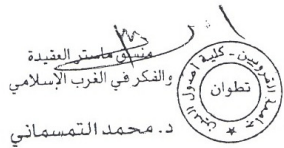 منسق ماستر العقيدة
والفكر في الغرب الإسلامي
د. محمد التمسماني
جامعة القرويين - كلية أصول الدين
تطوان